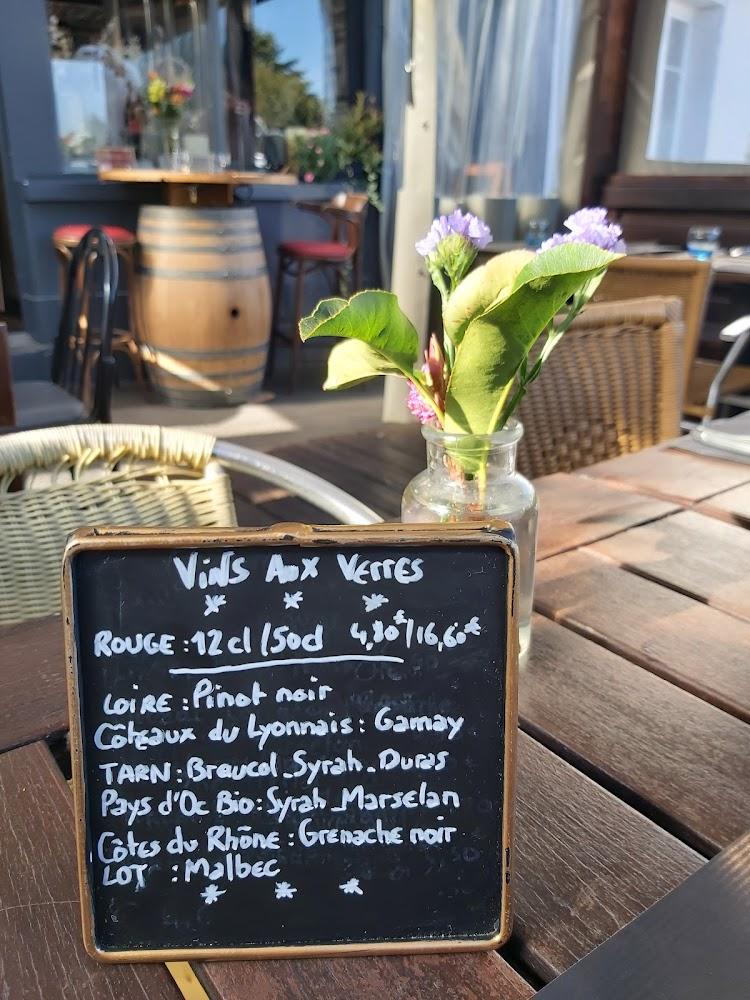 Vins Aux Verres
* * *
ROUGE : 12 cl / 50 cl 4,80€ / 16,60€
LOIRE : Pinot noir
Côteaux du Lyonnais : Gamay
TARN : Braucol - Syrah - Duras
Pays d'Oc Bio : Syrah - Marselan
Côtes du Rhône : Grenache noir
LOT : Malbec
* * *